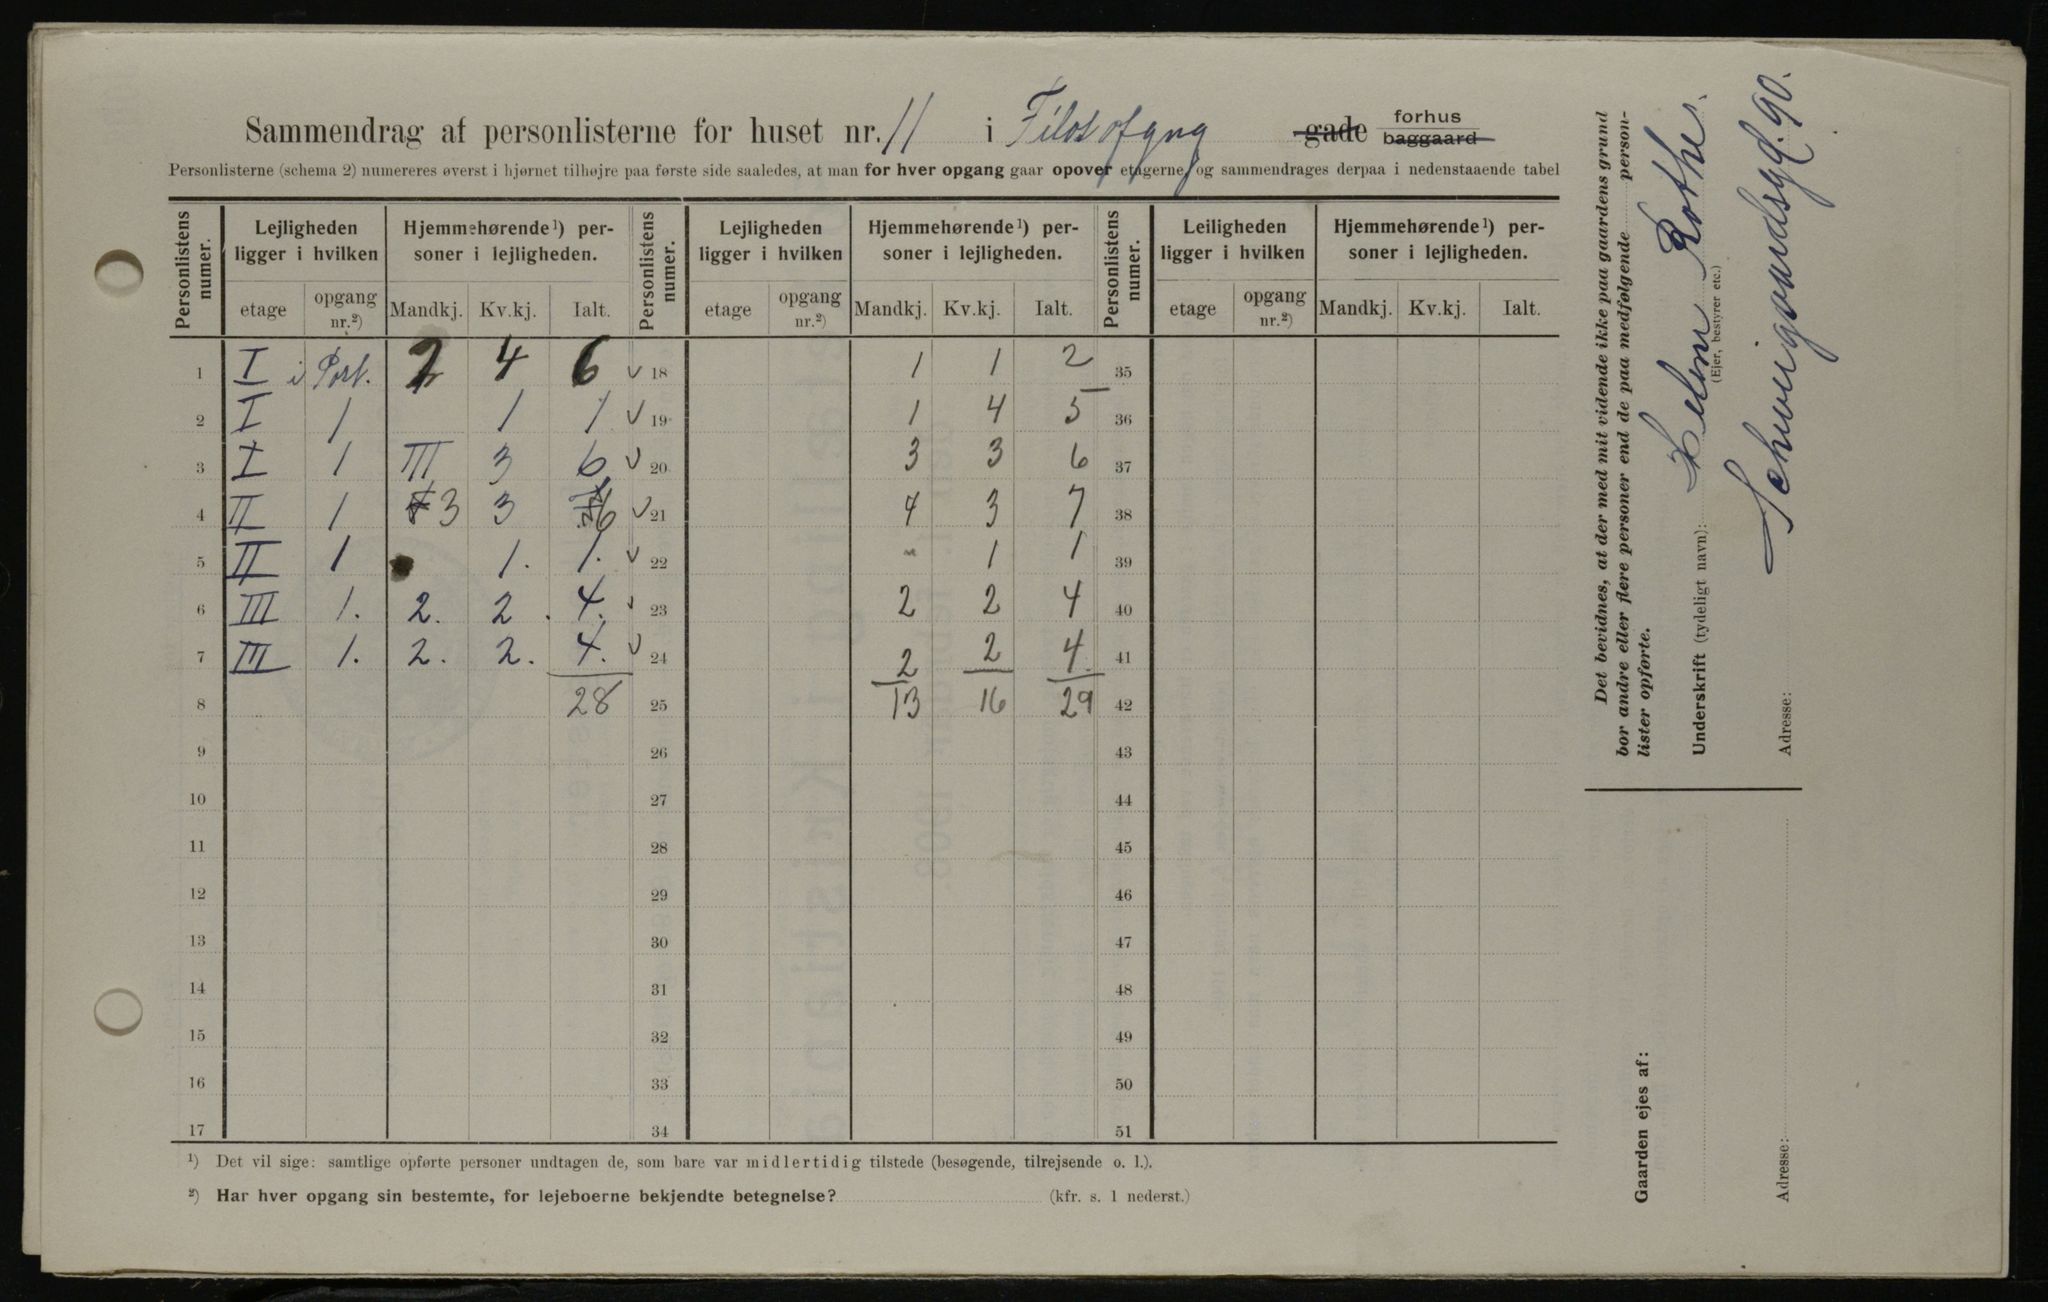 Sammendrag af personlisterne for huset nr. 11 i Filosofgng gade forhus baggaard
Personlisterne (schema 2) numereres øverst i hjørnet tilhøjre paa første side saaledes, at man for hver opgang gaar opover etagerne, og sammendrages derpaa i nedenstaaende tabel
Personlistens numer. Lejligheden ligger i hvilken Hjemmehørende ¹) personer i lejligheden. Personlistens numer. Lejligheden ligger i hvilken Hjemmehørende ¹) personer i lejligheden. Personlistens numer. Leiligheden ligger i hvilken Hjemmehørende ¹) personer i lejligheden.
etage opgang nr.²) Mandkj. Kv.kj. Ialt. etage opgang nr.²) Mandkj. Kv.kj. Ialt. etage opgang nr.²) Mandkj. Kv.kj. Ialt.
1 I i Port. 2 4 6 18 1 1 2 35
2 I 1 1 1 19 1 4 5 36
3 I 1 III 3 6 20 3 3 6 37
4 II 1 3 3 6 21 4 3 7 38
5 II 1 1. 1. 22 - 1 1 39
6 III 1. 2. 2. 4. 23 2 2 4 40
7 III 1. 2. 2. 4. 24 2 2 4 41
8 28 25 13 16 29 42
9 26 43
10 27 44
11 28 45
12 29 46
13 30 47
14 31 48
15 32 49
16 33 50
17 34 51
¹) Det vil sige: samtlige opførte personer undtagen de, som bare var midlertidig tilstede (besøgende, tilrejsende o. l.).
²) Har hver opgang sin bestemte, for lejeboerne bekjendte betegnelse? (kfr. s. 1 nederst.)
Det bevidnes, at der med mit vidende ikke paa gaardens grund
bor andre eller flere personer end de paa medfølgende personlister opførte.
Underskrift (tydeligt navn): Rothe.
(Ejer, bestyrer etc.)
Adresse: Schweigaardsgd. 90.
Gaarden ejes af:
Adresse: